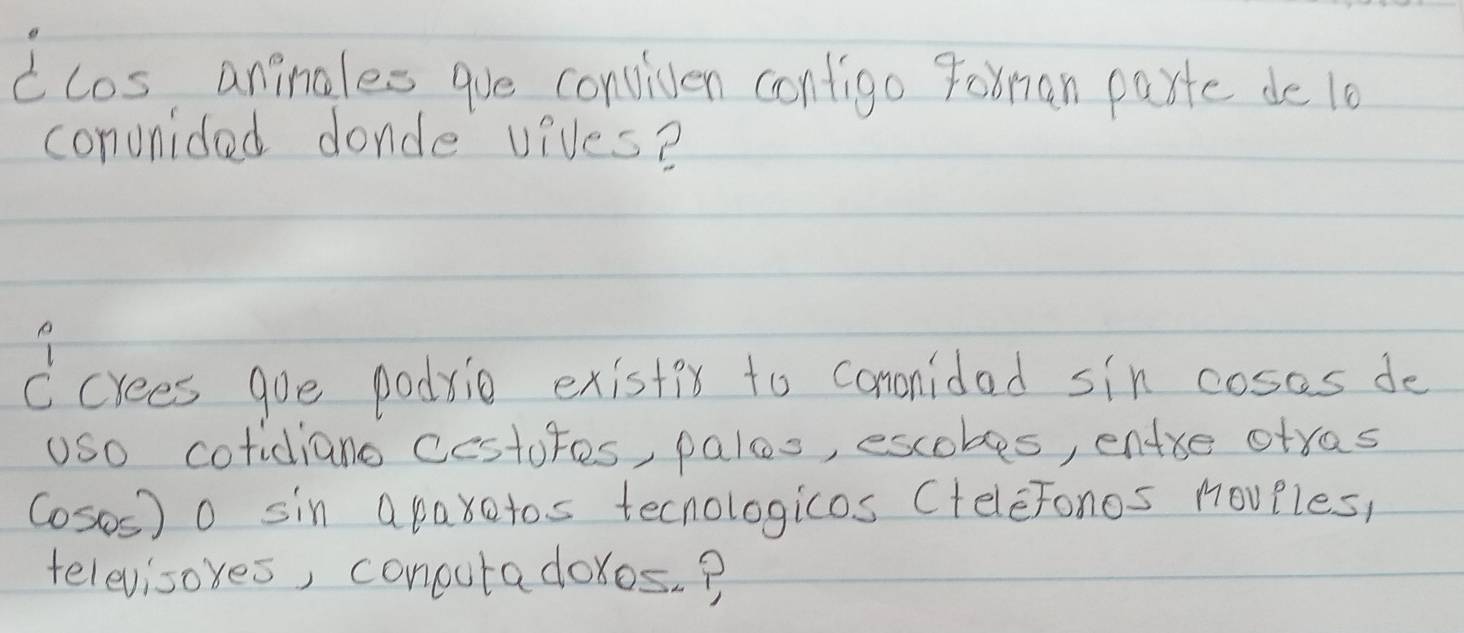 ¿Los animales que conviven contigo forman parte de la
comunidad donde vives?
¿Crees que podria existir tu comonidad sin cosas de
uso cotidiano (estufas, palas, escobas, entre otras
cosas) o sin aparatos tecnologicos (teléfonos moviles,
televisores, computadoras.?